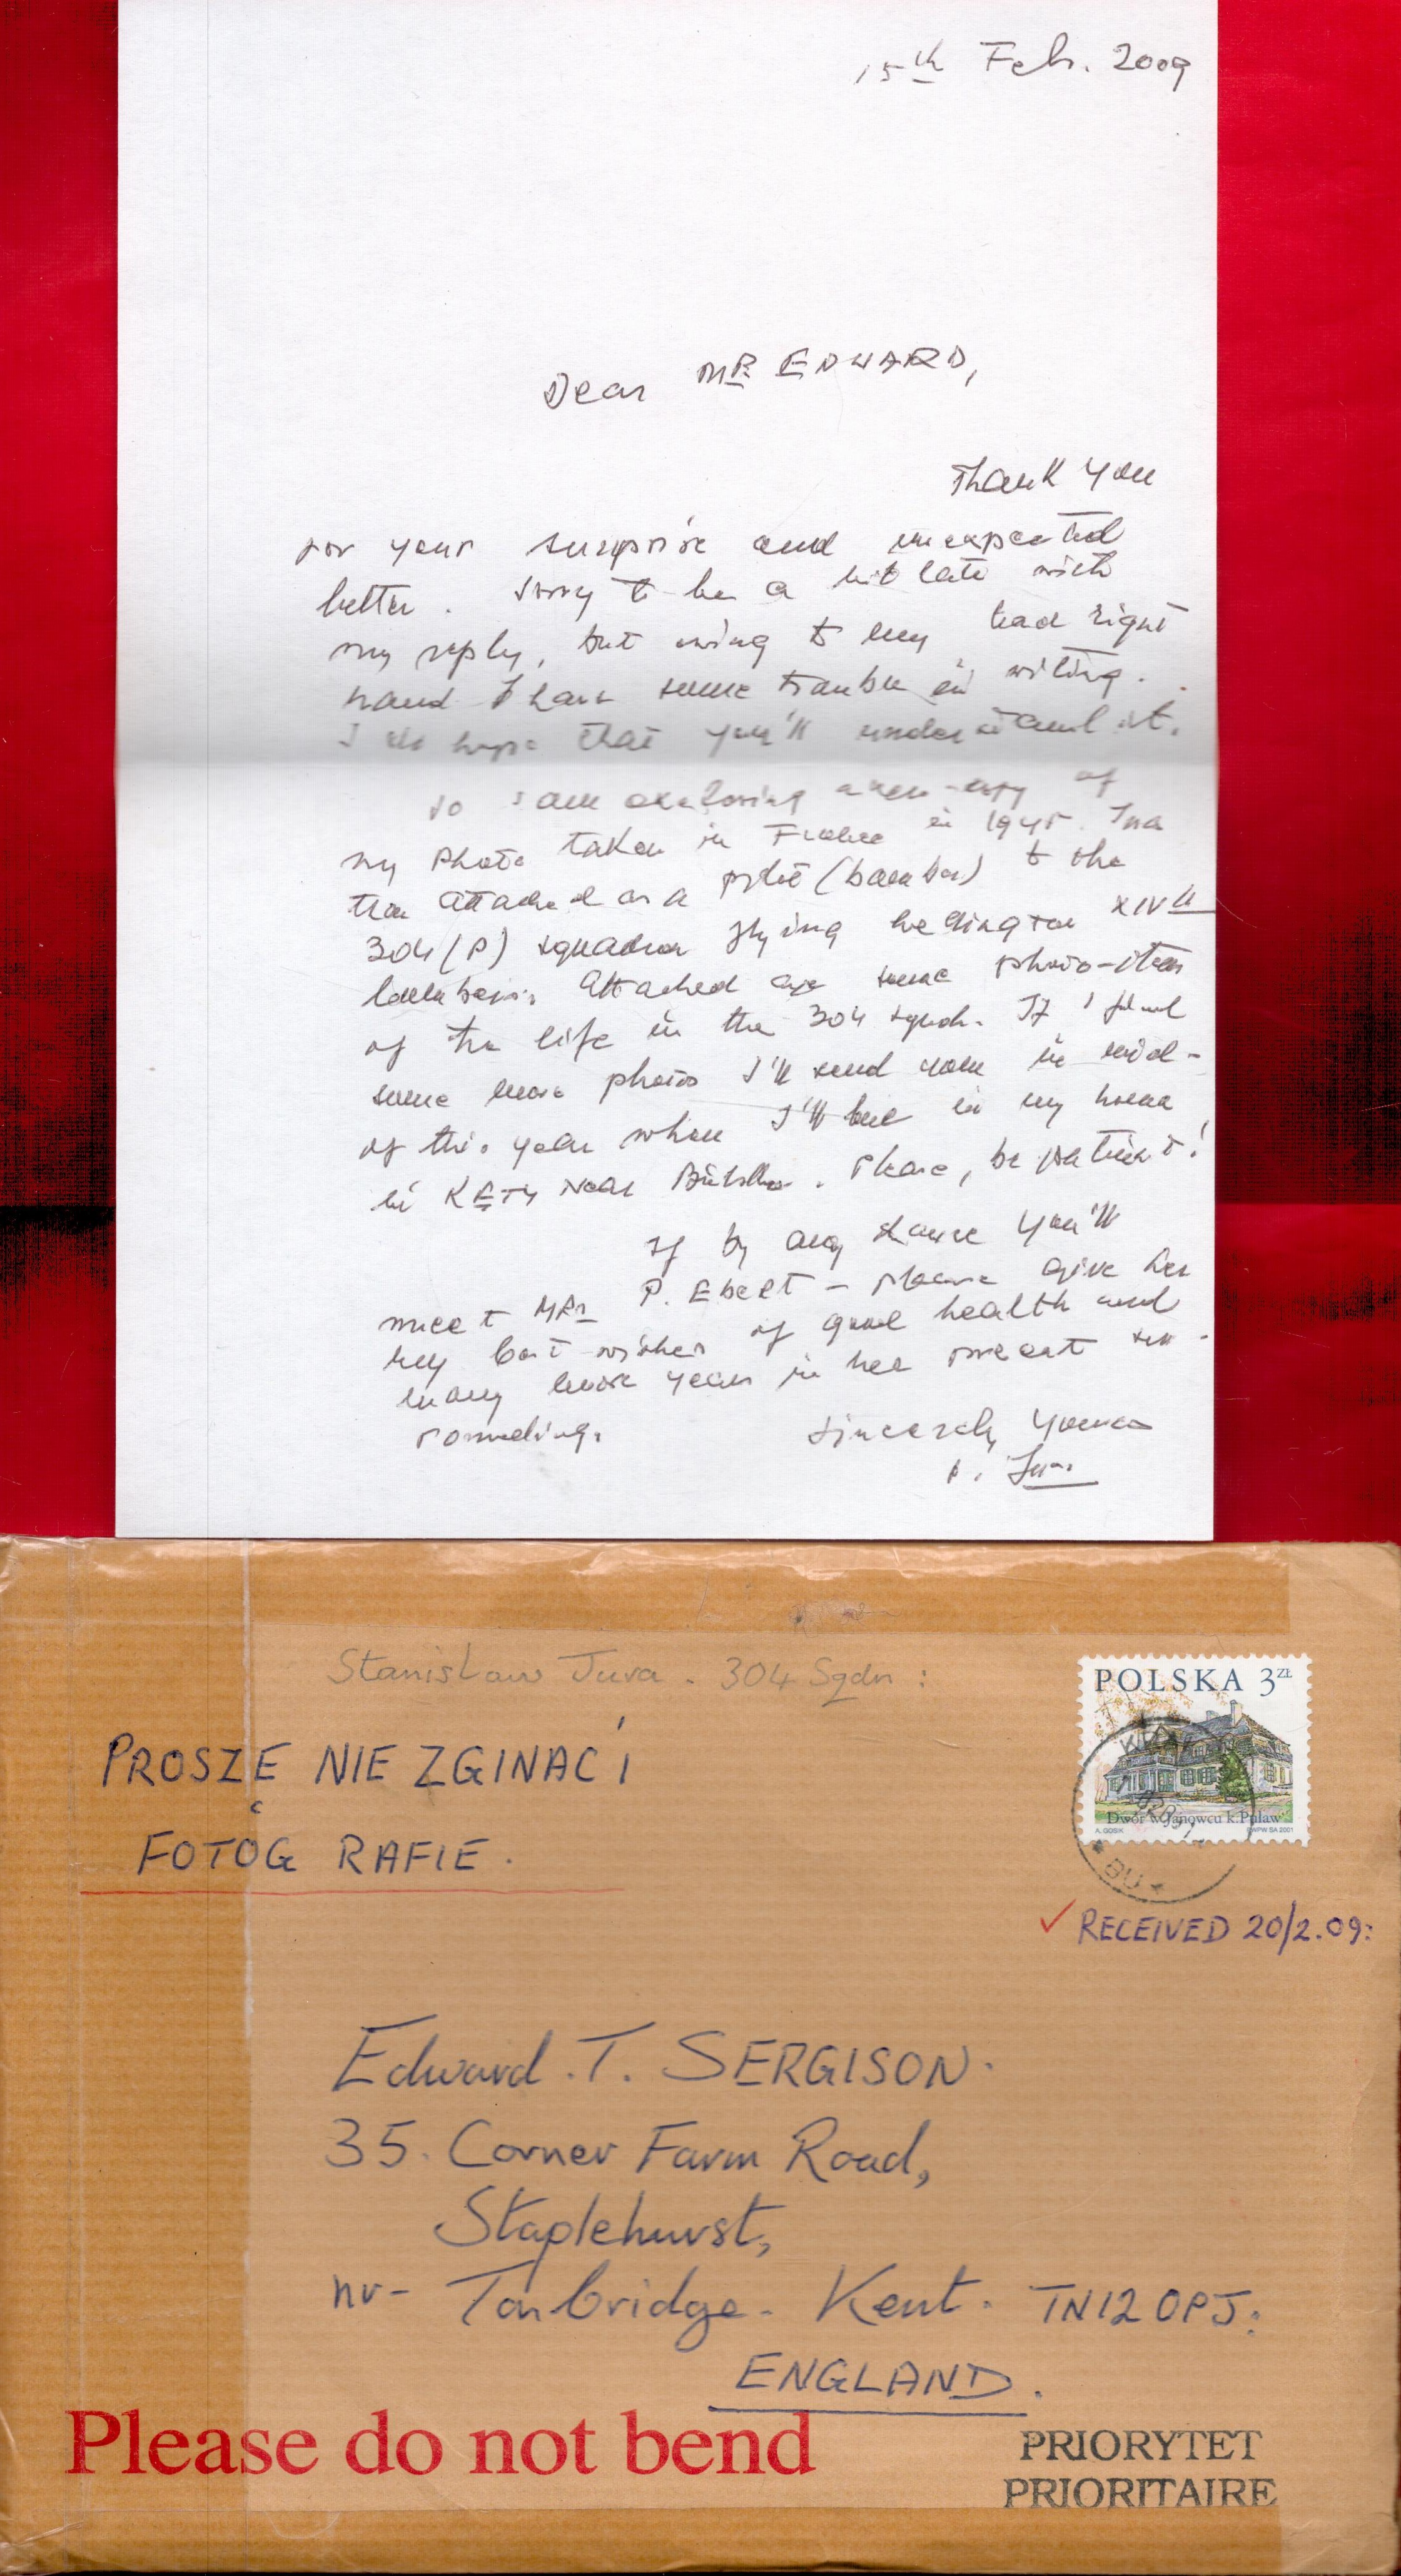 15th Feb. 2009
Dear MR EDWARD,
Thank You
for your surprise and unexpected
letter. Sorry to be a bit late with
my reply, but owing to my bad right
hand I have some trouble in writing.
I do hope that you'll understand it.
So I am enclosing a copy of
my photo taken in France in 1945. I was
then attached as a pilot (bomber) to the
304 (P) squadron flying Wellington XIVth
bombers. Attached are some photo-items
of the life in the 304 squdr. If I find
some more photos I'll send you in mid-
of this year when I'll be in my home
in KĘTY near Bielsko. Please, be patient!
If by any chance you'll
meet MRS P. Ebert - please give her
my best wishes of good health and
many more years in her present sur-
roundings
Sincerely Yours
Stanislaw Jura. 304 Sqdn:
PROSZĘ NIE ZGINAĆ
FOTOGRAFIE.
POLSKA 3 ZŁ
Dwór w Janowcu k.Puław
A. GOSIK PWPW SA 2001
✓ RECEIVED 20/2.09:
Edward. T. SERGISON.
35. Corner Farm Road,
Staplehurst,
nr- Tonbridge. Kent. TN12 0PJ:
ENGLAND.
Please do not bend
PRIORYTET
PRIORITAIRE